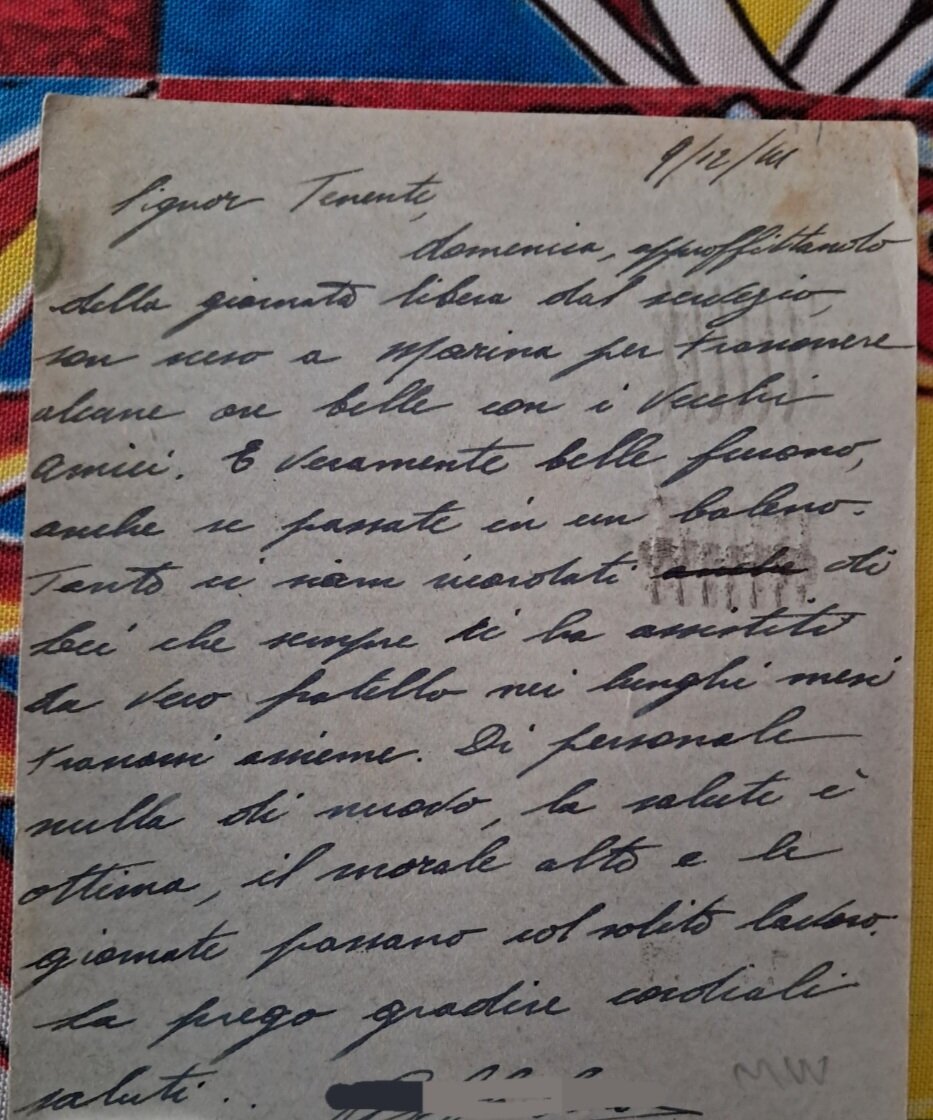 9/12/41
Signor Tenente,
domenica, approffittando
della giornata libera dal servizio,
son sceso a Marina per trascorrere
alcune ore belle con i vecchi
amici. E veramente belle furono,
anche se passate in un baleno.
Tanto ci siam ricordati anche di
Lei che sempre ci ha assistiti
da vero fratello nei lunghi mesi
trascorsi assieme. Di personale
nulla di nuovo, la salute è
ottima, il morale alto e le
giornate passano col solito lavoro.
La prego gradire cordiali
saluti.